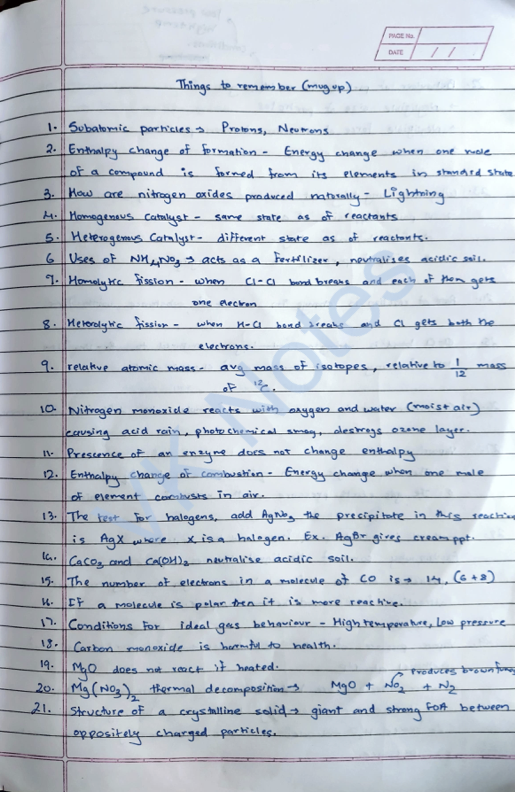 PAGE No.
DATE / /
Things to remember (mugup)
1. Subatomic particles → Protons, Neutrons
2. Enthalpy change of formation - Energy change when one mole
of a compound is formed from its elements in standard state
3. How are nitrogen oxides produced naturally - Lightning
4. Homogenous Catalyst - same state as of reactants
5. Heterogenous Catalyst - different state as of reactants.
6 Uses of NH4NO3 → acts as a fertilizer, neutralises acidic soil.
7. Homolytic fission - when Cl-Cl bond breaks and each of them gets
one electron
8. Heterolytic fission - when H-Cl bond breaks and Cl gets both the
electrons.
9. relative atomic mass - avg mass of isotopes, relative to 1/12 mass
of ¹²C.
10. Nitrogen monoxide reacts with oxygen and water (moist air)
causing acid rain, photochemical smog, destroys ozone layer.
11. Prescence of an enzyme does not change enthalpy
12. Enthalpy change of combustion - Energy change when one mole
of element combusts in air.
13. The test for halogens, add AgNO3 the precipitate in this reaction
is AgX where X is a halogen. Ex. AgBr gives cream ppt.
14. CaCO3 and Ca(OH)2 neutralise acidic soil.
15. The number of electrons in a molecule of CO is → 14, (6+8)
16. If a molecule is polar then it is more reactive.
17. Conditions for ideal gas behaviour - High temperature, Low pressure
18. Carbon monoxide is harmful to health.
19. MgO does not react if heated.
produces brown fumes
20. Mg(NO3)2 thermal decomposition → MgO + NO2 + N2
21. Structure of a crystalline solid → giant and strong FOA between
oppositely charged particles.
Notes